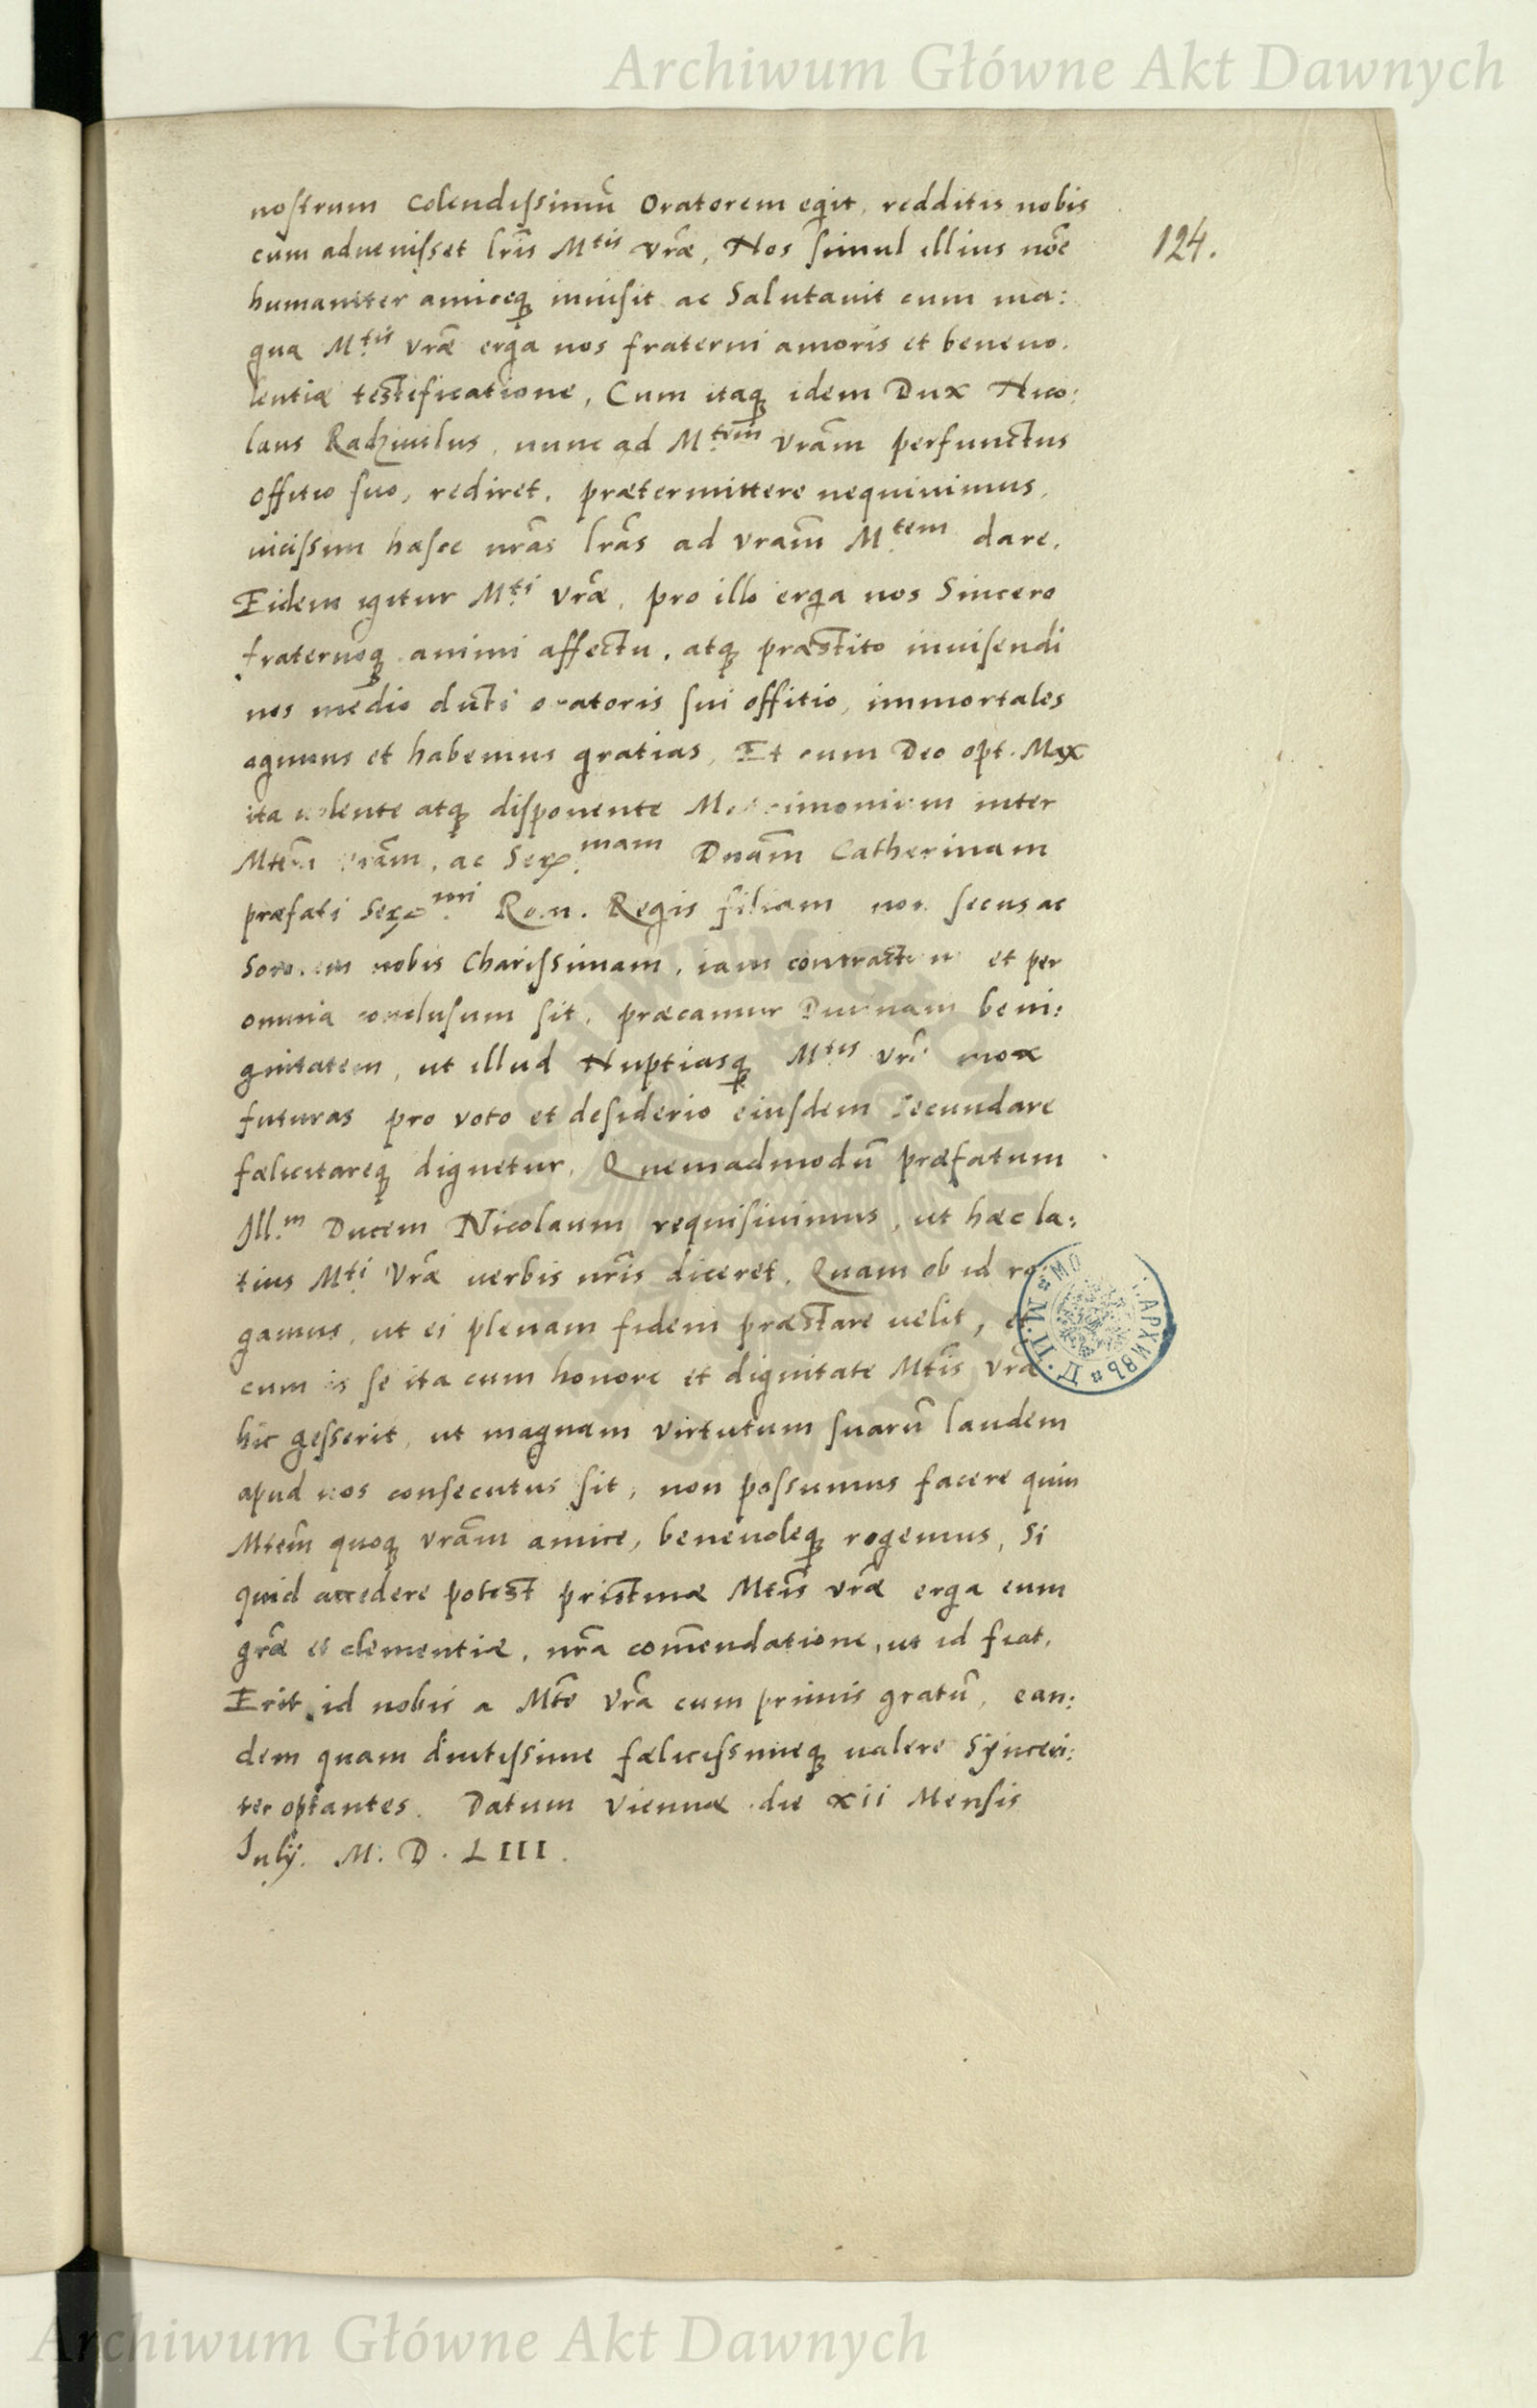 Archiwum Główne Akt Dawnych
nostrum colendissimũ Oratorem egit, redditis nobis
cum advenisset lr̃is M^tis vr̃æ, Nos simul illius nõe
124.
humaniter amiceq; invisit ac Salutavit cum ma:
gna M^tis vr̃æ erga nos fraterni amoris et benevo.
lentiæ testificatione, Cum itaq; idem Dux Nico:
laus Radzivilus, nunc ad M^tem vrãm perfunctus
offitio suo, rediret, prætermittere nequivimus,
vicissim hasce nrãs lrãs ad vrãm M^tem dare.
Eidem igitur M^ti vr̃æ, pro illo erga nos Sincero
fraternoq; animi affectu, atq; præstito invisendi
nos medio dicti oratoris sui offitio, immortales
agimus et habemus gratias, Et cum Deo opt. Max
ita volente atq; disponente Matrimonium inter
Mtẽm vrãm, ac Ser^mam Dnãm Catherinam
præfati Ser^mi Rom. Regis filiam non secus ac
Sororem nobis Charissimam, iam contractum et per
omnia conclusum sit, præcamur Divinam beni:
gnitatem, ut illud Nuptiasq; M^tis Vr̃æ mox
futuras pro voto et desiderio eiusdem secundare
fælicitareq; dignetur, Quemadmodũ præfatum
Ill.^m Ducem Nicolaum requisivimus, ut hæc la:
tius M^ti Vr̃æ verbis nr̃is diceret. Quam ob id ro
gamus, ut ei plenam fidem præstare velit, et
cum is se ita cum honore et dignitate Mtĩs Vræ
hic gesserit, ut magnam virtutum suarũ laudem
apud nos consecutus sit, non possumus facere quin
Mtẽm quoq; vrãm amice, benevoleq; rogemus, Si
quid accedere potest pristinæ Mtĩs vr̃æ erga eum
gr̃æ et clementiæ, nr̃a com̃endatione, ut id fiat,
Erit id nobis a Mtẽ Vr̃a cum primis gratũ, ean:
dem quam diutissime fælicissimeq; valere Synceri:
ter optantes. Datum Viennæ die xii Mensis
July. M. D. LIII.
Archiwum Główne Akt Dawnych